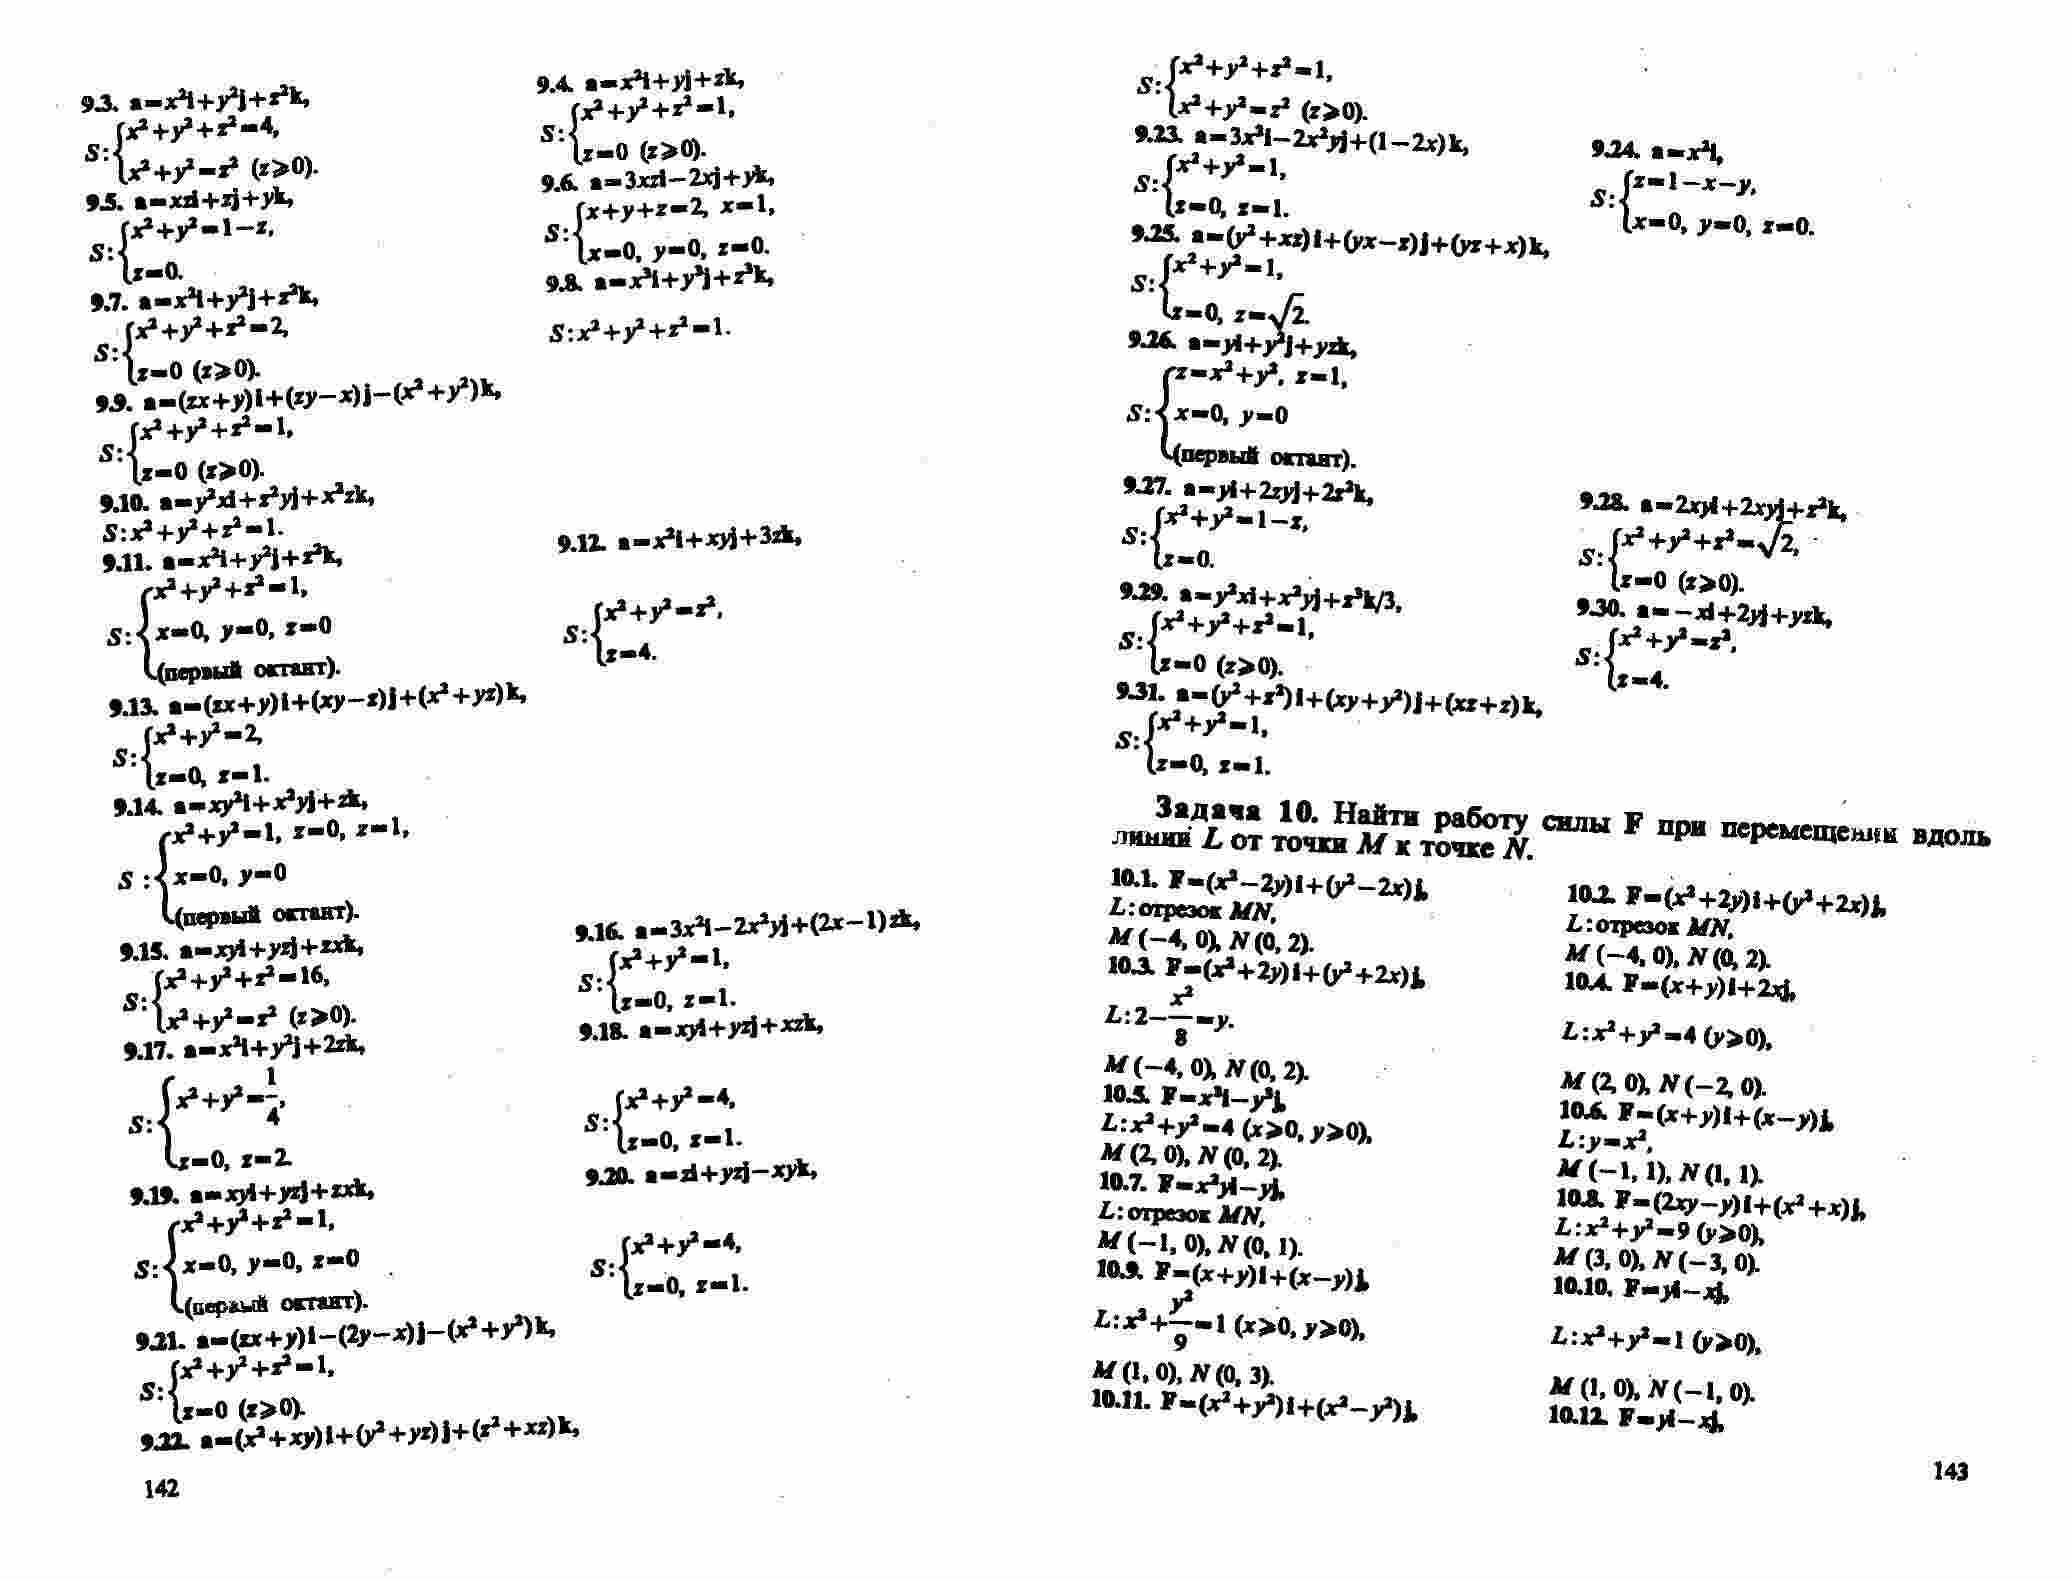 9.3. a=x²i+y²j+z²k,
S: {x²+y²+z²=4,
x²+y²=z² (z⩾0).
9.4. a=x²i+yj+zk,
S: {x²+y²+z²=1,
z=0 (z⩾0).
9.5. a=xzi+zj+yk,
S: {x²+y²=1−z,
z=0.
9.6. a=3xzi−2xj+yk,
S: {x+y+z=2, x=1,
x=0, y=0, z=0.
9.7. a=x²i+y²j+z²k,
S: {x²+y²+z²=2,
z=0 (z⩾0).
9.8. a=x³i+y³j+z³k,
S:x²+y²+z²=1.
9.9. a=(zx+y)i+(zy−x)j−(x²+y²)k,
S: {x²+y²+z²=1,
z=0 (z⩾0).
9.10. a=y²xi+z²yj+x²zk,
S:x²+y²+z²=1.
9.11. a=x²i+y²j+z²k,
S: {x²+y²+z²=1,
x=0, y=0, z=0
(первый октант).
9.12. a=x²i+xyj+3zk,
S: {x²+y²=z²,
z=4.
9.13. a=(zx+y)i+(xy−z)j+(x²+yz)k,
S: {x²+y²=2,
z=0, z=1.
9.14. a=xy²i+x²yj+zk,
S : {x²+y²=1, z=0, z=1,
x=0, y=0
(первый октант).
9.15. a=xyi+yzj+zxk,
S: {x²+y²+z²=16,
x²+y²=z² (z⩾0).
9.16. a=3x²i−2x²yj+(2x−1)zk,
S: {x²+y²=1,
z=0, z=1.
9.17. a=x²i+y²j+2zk,
S: {x²+y²=1/4,
z=0, z=2.
9.18. a=xyi+yzj+xzk,
S: {x²+y²=4,
z=0, z=1.
9.19. a=xyi+yzj+zxk,
S: {x²+y²+z²=1,
x=0, y=0, z=0
(первый октант).
9.20. a=zi+yzj−xyk,
S: {x²+y²=4,
z=0, z=1.
9.21. a=(zx+y)i−(2y−x)j−(x²+y²)k,
S: {x²+y²+z²=1,
z=0 (z⩾0).
9.22. a=(x²+xy)i+(y²+yz)j+(z²+xz)k,
142
S: {x²+y²+z²=1,
x²+y²=z² (z⩾0).
9.23. a=3x²i−2x²yj+(1−2x)k,
S: {x²+y²=1,
z=0, z=1.
9.24. a=x²i,
S: {z=1−x−y,
x=0, y=0, z=0.
9.25. a=(y²+xz)i+(yx−z)j+(yz+x)k,
S: {x²+y²=1,
z=0, z=√2.
9.26. a=yi+y²j+yzk,
S: {z=x²+y², z=1,
x=0, y=0
(первый октант).
9.27. a=yi+2zyj+2z²k,
S: {x²+y²=1−z,
z=0.
9.28. a=2xyi+2xyj+z²k,
S: {x²+y²+z²=√2,
z=0 (z⩾0).
9.29. a=y²xi+x²yj+z³k/3,
S: {x²+y²+z²=1,
z=0 (z⩾0).
9.30. a=−xi+2yj+yzk,
S: {x²+y²=z²,
z=4.
9.31. a=(y²+z²)i+(xy+y²)j+(xz+z)k,
S: {x²+y²=1,
z=0, z=1.
Задача 10. Найти работу силы F при перемещении вдоль
линии L от точки M к точке N.
10.1. F=(x²−2y)i+(y²−2x)j,
L:отрезок MN,
M (−4, 0), N (0, 2).
10.2. F=(x²+2y)i+(y²+2x)j,
L:отрезок MN,
M (−4, 0), N (0, 2).
10.3. F=(x²+2y)i+(y²+2x)j,
L:2−x²/8=y.
M (−4, 0), N (0, 2).
10.4. F=(x+y)i+2xj,
L:x²+y²=4 (y⩾0),
M (2, 0), N (−2, 0).
10.5. F=x³i−y³j,
L:x²+y²=4 (x⩾0, y⩾0),
M (2, 0), N (0, 2).
10.6. F=(x+y)i+(x−y)j,
L:y=x²,
M (−1, 1), N (1, 1).
10.7. F=x²yi−yj,
L:отрезок MN,
M (−1, 0), N (0, 1).
10.8. F=(2xy−y)i+(x²+x)j,
L:x²+y²=9 (y⩾0),
M (3, 0), N (−3, 0).
10.9. F=(x+y)i+(x−y)j,
L:x²+y²/9=1 (x⩾0, y⩾0),
M (1, 0), N (0, 3).
10.10. F=yi−xj,
L:x²+y²=1 (y⩾0),
M (1, 0), N (−1, 0).
10.11. F=(x²+y²)i+(x²−y²)j,
10.12. F=yi−xj,
143